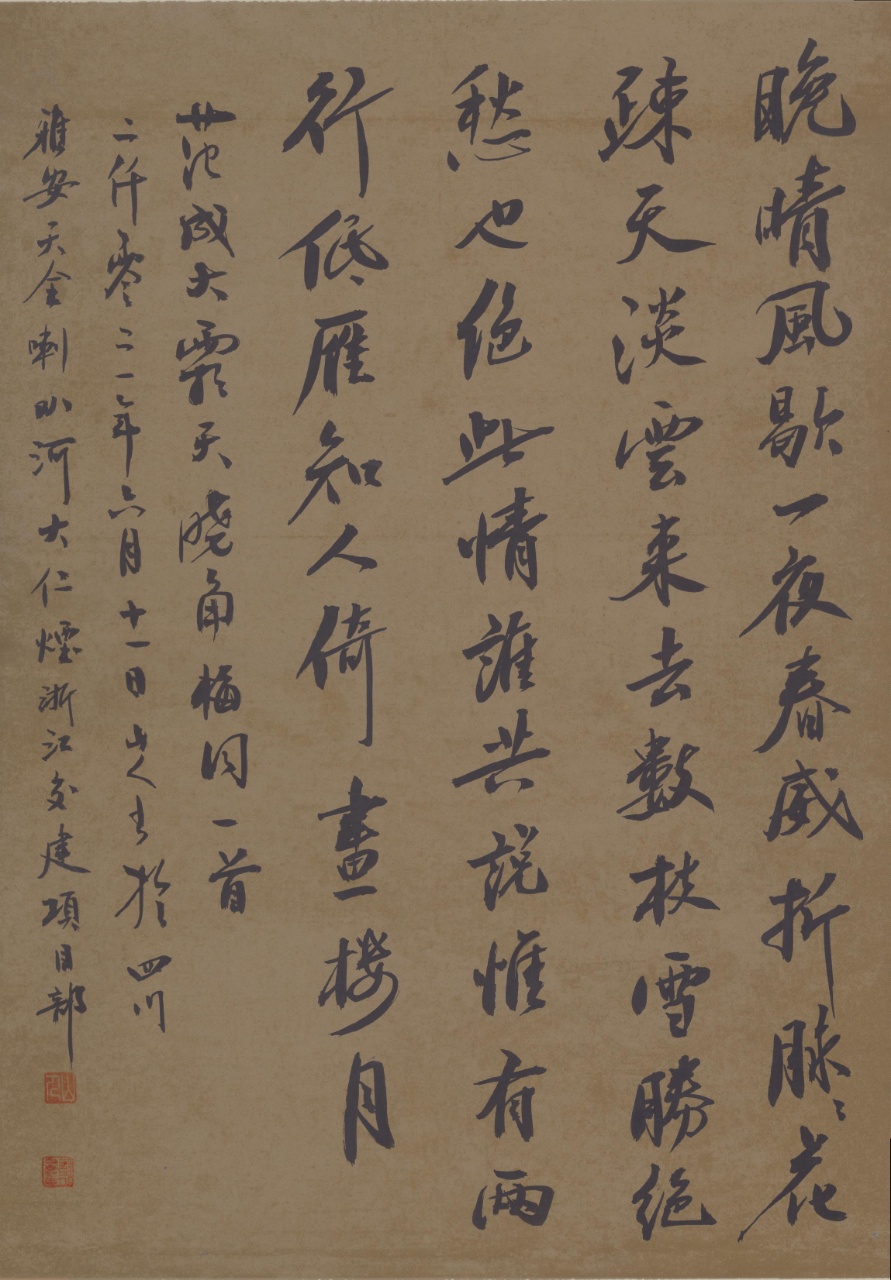 晚晴風歇一夜春威折脉〻花
疎天淡雲來去數枝雪勝絕
愁也絕此情誰共說惟有兩
行低雁知人倚畫樓月
范成大霜天曉角梅詞一首
二仟零二一年六月十一日书於四川
雅安天全喇叭河大仁煙浙江交建項目部